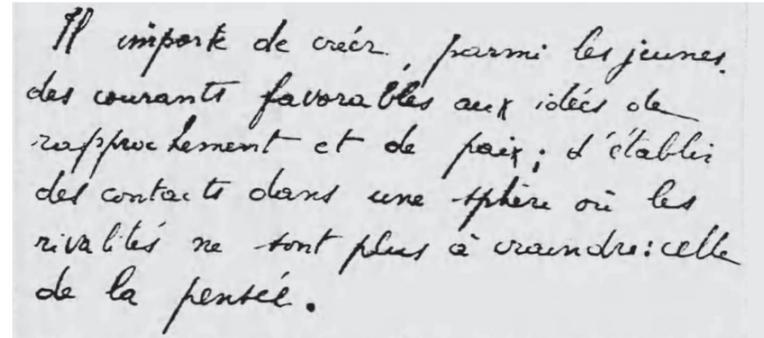 Il importe de créer, parmi les jeunes.
des courants favorables aux idées de
rapprochement et de paix ; d'établir
des contacts dans une sphère où les
rivalités ne sont plus à craindre : celle
de la pensée.